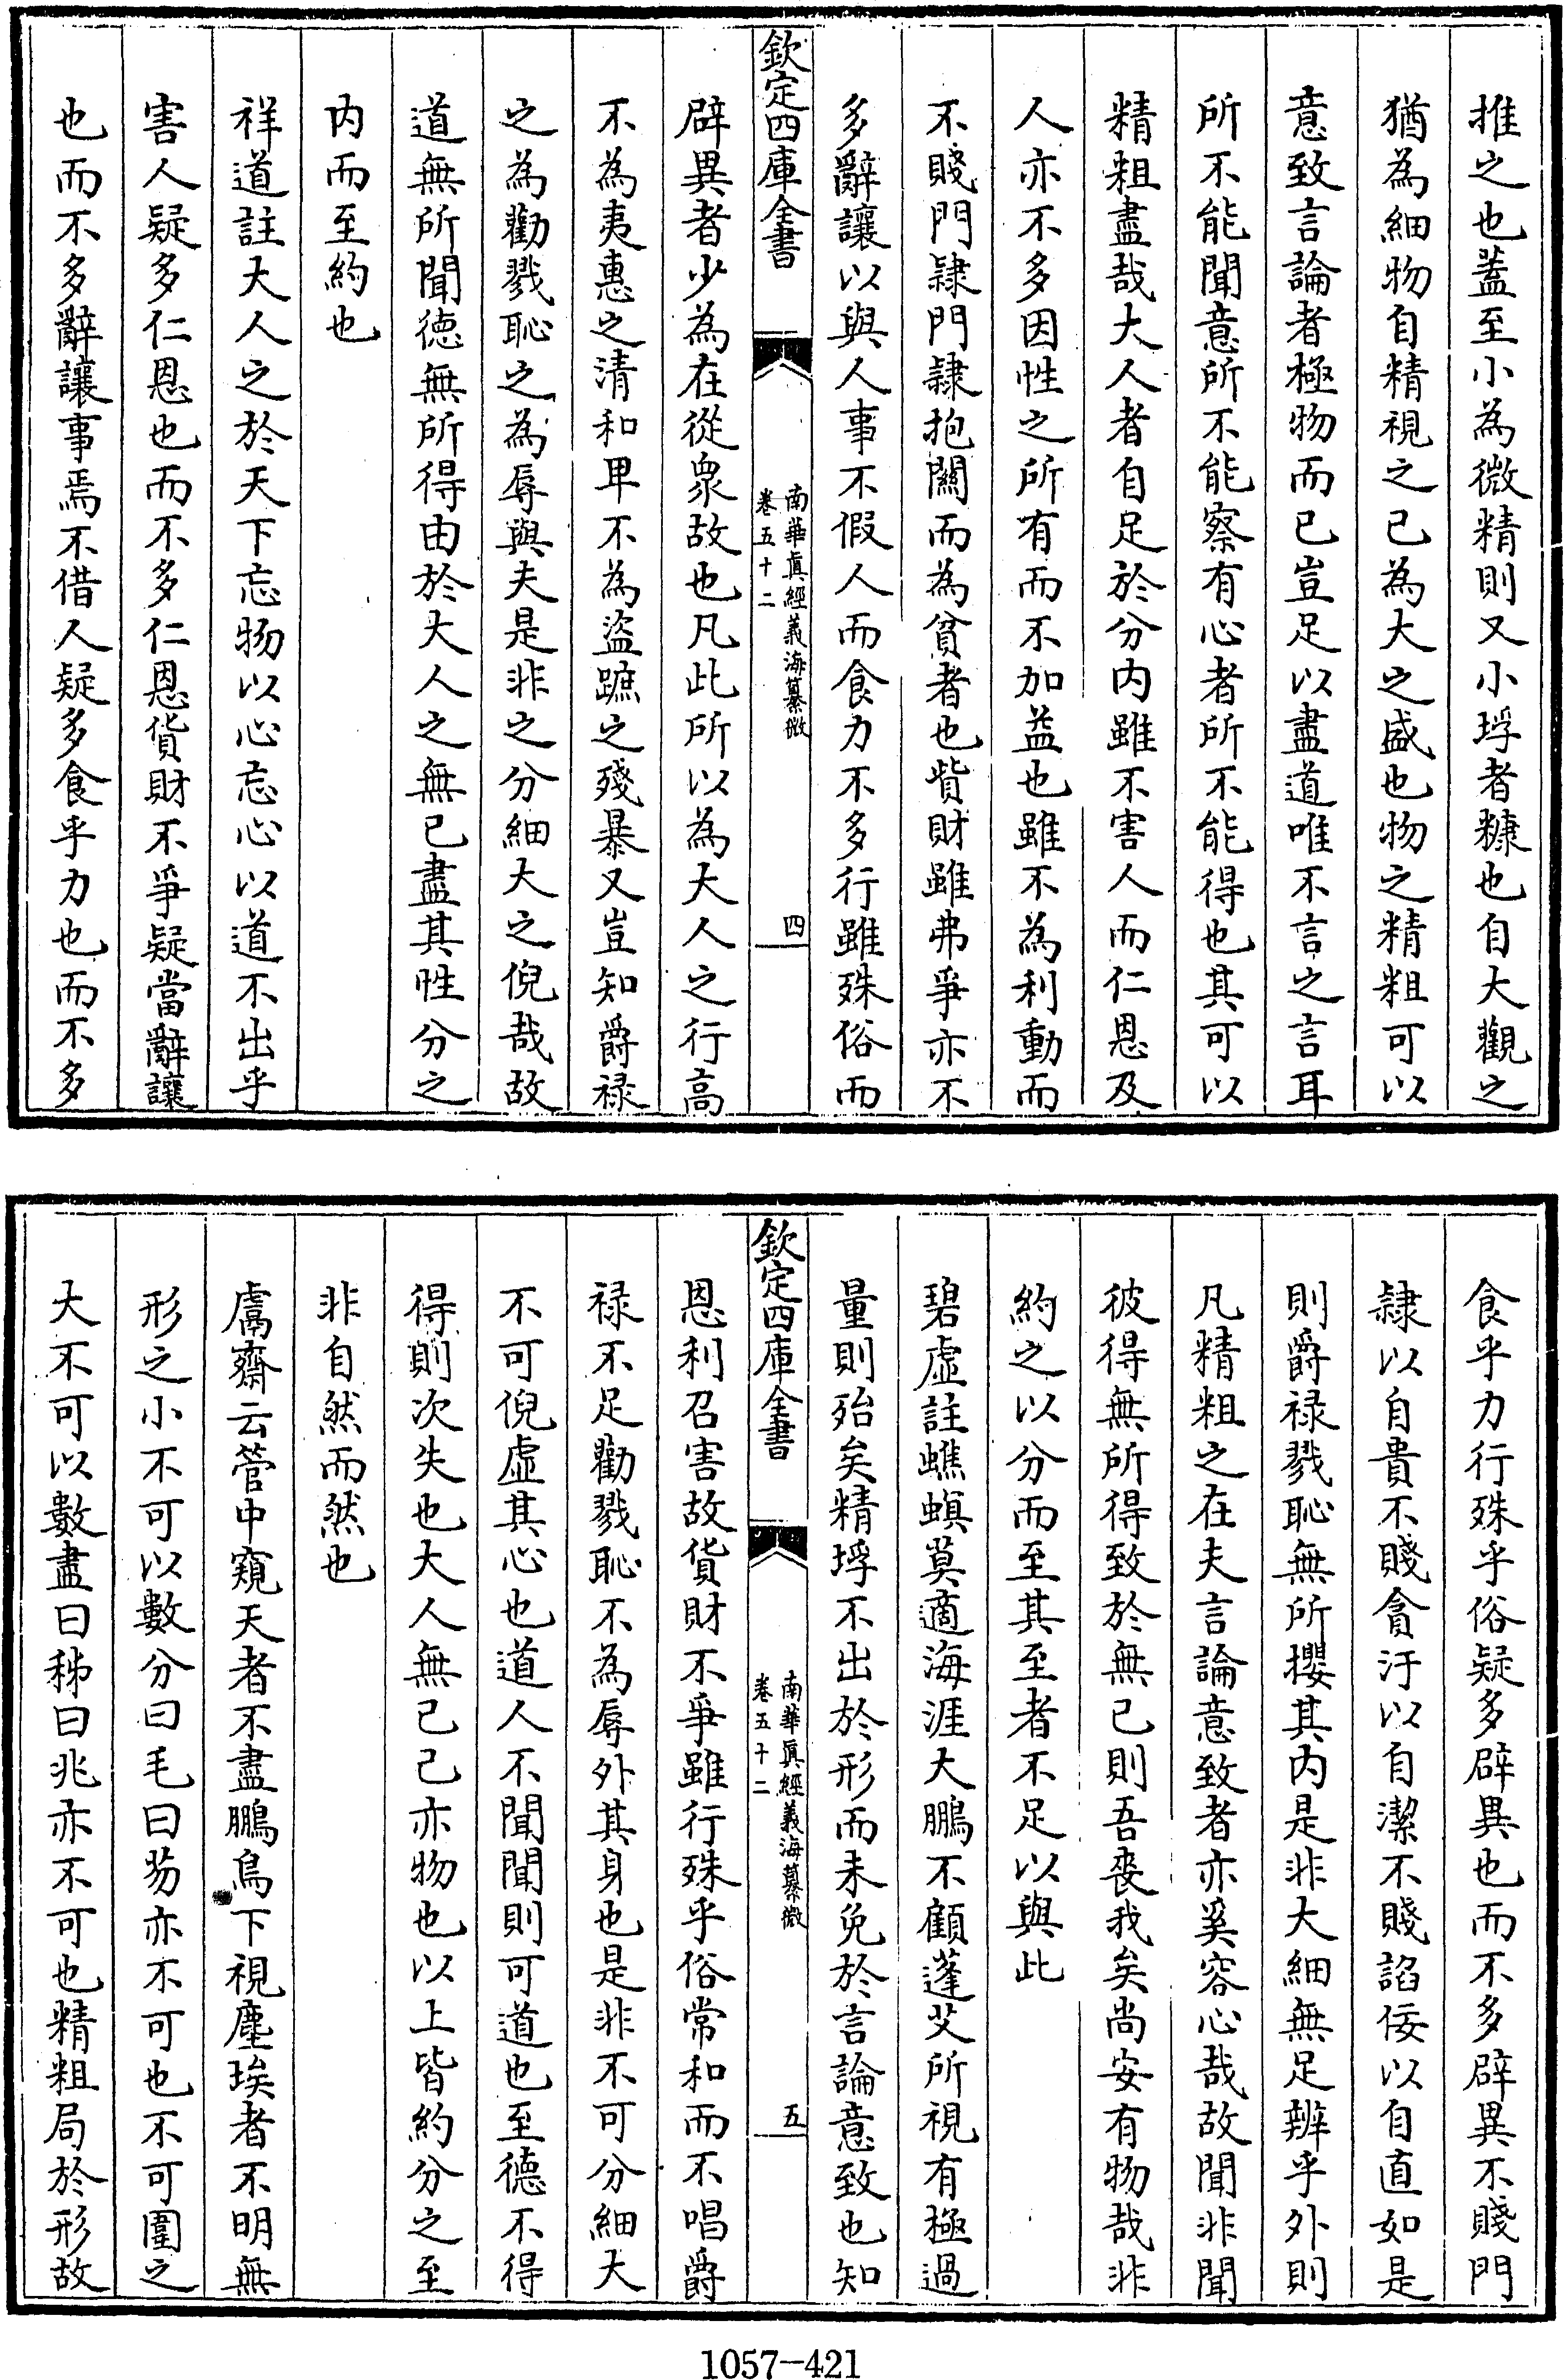 推之也蓋至小為微精則又小垺者糠也自大觀之
猶為細物自精視之已為大之盛也物之精粗可以
意致言論者極物而已豈足以盡道唯不言之言耳
所不能聞意所不能察有心者所不能得也其可以
精粗盡哉大人者自足於分内雖不害人而仁恩及
人亦不多因性之所有而不加益也雖不為利動而
不賤門隸門隸抱關而為貧者也貲財雖弗爭亦不
多辭讓以與人事不假人而食力不多行雖殊俗而
欽定四庫全書
南華真經義海纂微
卷五十二
四
辟異者少為在從衆故也凡此所以為大人之行高
不為夷惠之清和卑不為盜蹠之殘暴又豈知爵禄
之為勸戮恥之為辱與夫是非之分細大之倪哉故
道無所聞徳無所得由於大人之無已盡其性分之
内而至約也
祥道註大人之於天下忘物以心忘心以道不出乎
害人疑多仁恩也而不多仁恩貨財不爭疑當辭讓
也而不多辭讓事焉不借人疑多食乎力也而不多
食乎力行殊乎俗疑多辟異也而不多辟異不賤門
隸以自貴不賤貪汙以自潔不賤諂佞以自直如是
則爵禄戮恥無所攖其内是非大細無足辨乎外則
凡精粗之在夫言論意致者亦奚容心哉故聞非聞
彼得無所得致於無已則吾喪我矣尚安有物哉非
約之以分而至其至者不足以與此
碧虛註蟭螟莫適海涯大鵬不顧蓬艾所視有極過
量則殆矣精垺不出於形而未免於言論意致也知
欽定四庫全書
南華真經義海纂微
卷五十二
五
恩利召害故貨財不爭雖行殊乎俗常和而不唱爵
禄不足勸戮恥不為辱外其身也是非不可分細大
不可倪虛其心也道人不聞聞則可道也至德不得
得則次失也大人無已己亦物也以上皆約分之至
非自然而然也
鬳齋云管中窺天者不盡鵬鳥下視塵埃者不明無
形之小不可以數分曰毛曰芴亦不可也不可圍之
大不可以數盡曰秭曰兆亦不可也精粗局於形故
1057-421